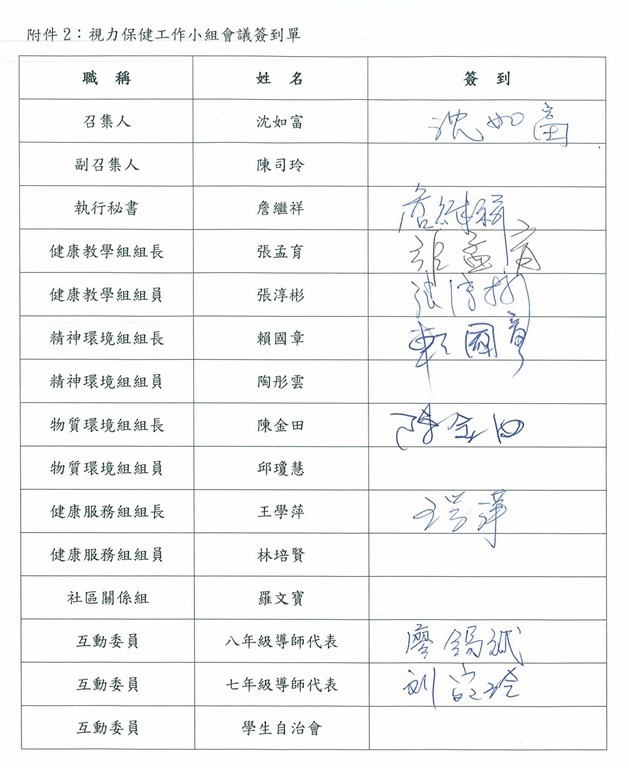 附件2：視力保健工作小組會議簽到單
職 稱 姓 名 簽 到
召集人 沈如富 沈如富
副召集人 陳司玲
執行秘書 詹繼祥 詹繼祥
健康教學組組長 張孟育 張孟育
健康教學組組員 張淳彬 張淳彬
精神環境組組長 賴國章 賴國章
精神環境組組員 陶彤雲
物質環境組組長 陳金田 陳金田
物質環境組組員 邱瓊慧
健康服務組組長 王學萍 王学萍
健康服務組組員 林培賢
社區關係組 羅文寶
互動委員 八年級導師代表 廖錫
互動委員 七年級導師代表
互動委員 學生自治會